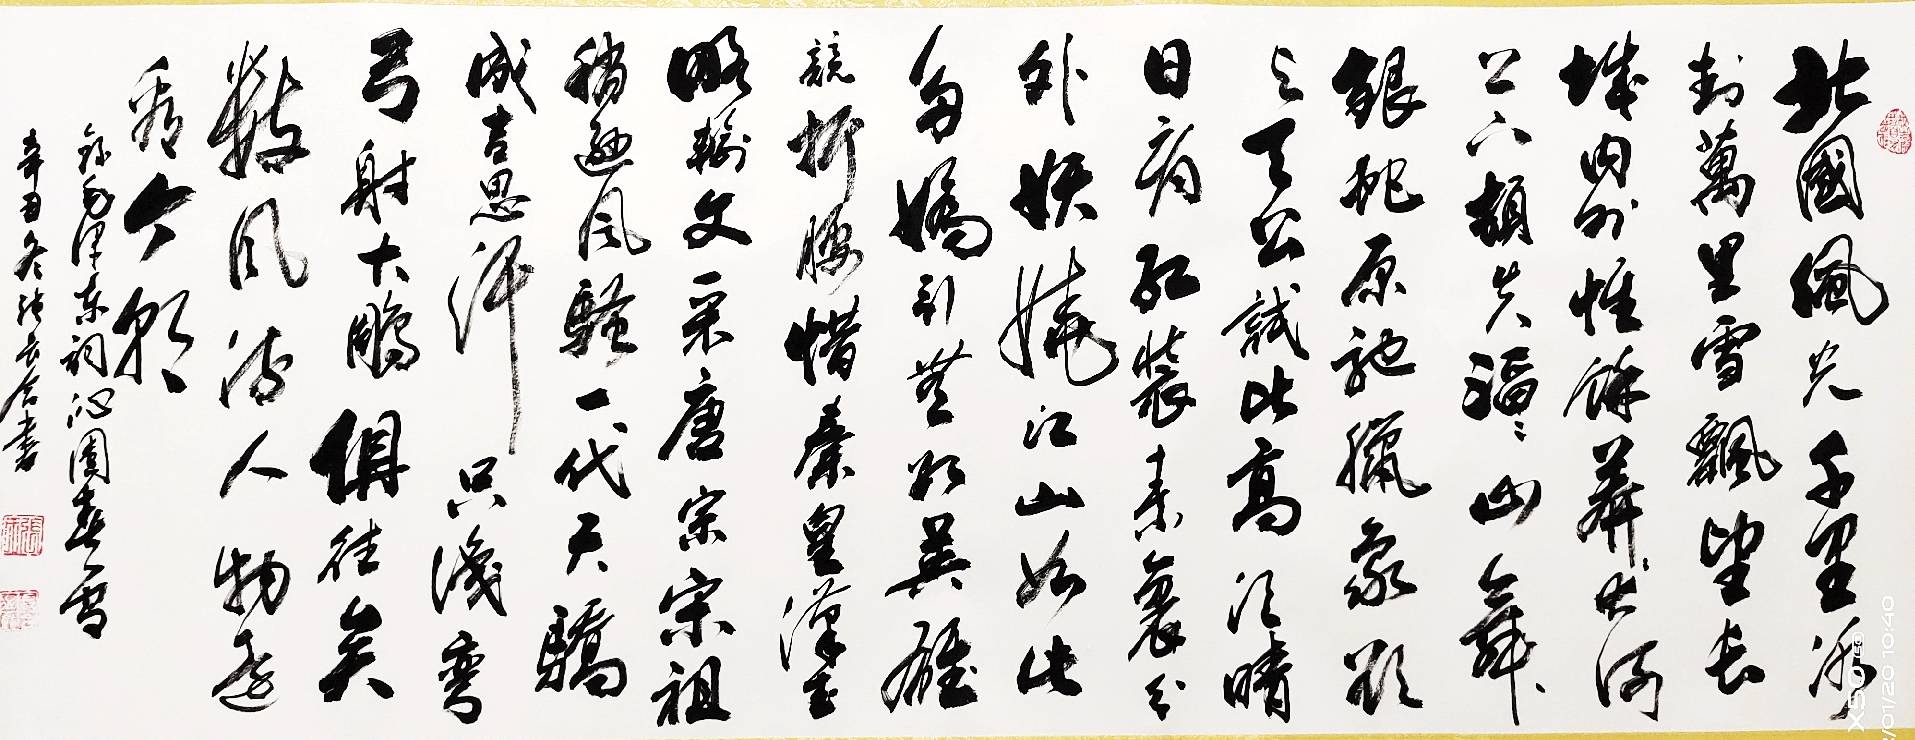 北國風光千里冰
封萬里雪飄望長
城内外惟餘莽莽大河
上下頓失滔滔山舞
銀蛇原馳臘象欲
与天公試比高須晴
日看紅裝素裹分
外妖嬈江山如此
多嬌引無數英雄
競折腰惜秦皇漢武
略輸文采唐宗宋祖
稍遜風騷一代天驕
成吉思汗只識彎
弓射大鵰俱往矣
數風流人物還
看今朝
錄毛澤東詞沁園春雪
辛丑冬張書
X50 5G
/01/20 10:40